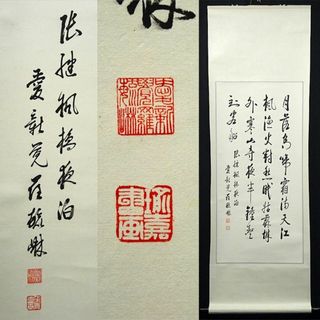 月落烏啼霜滿天江
楓漁火對愁眠姑蘇城
外寒山寺夜半鐘聲
到客船 張继楓橋夜泊
愛新覺羅
張继楓橋夜泊
愛新覺羅
愛新覺羅
書畫